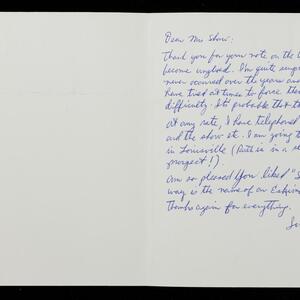 Dear Mrs Show:
Thank you for your note on the
become unglued. I'm quite
never occurred over the years and
have tried at times to force the
difficulty. It's probable that
At any rate, I have telephoned
and the show etc. I am going
in Louisville (Ruth is in a
prospect!).
Am so pleased you liked "S
way is the name of an
thanks again for everything.